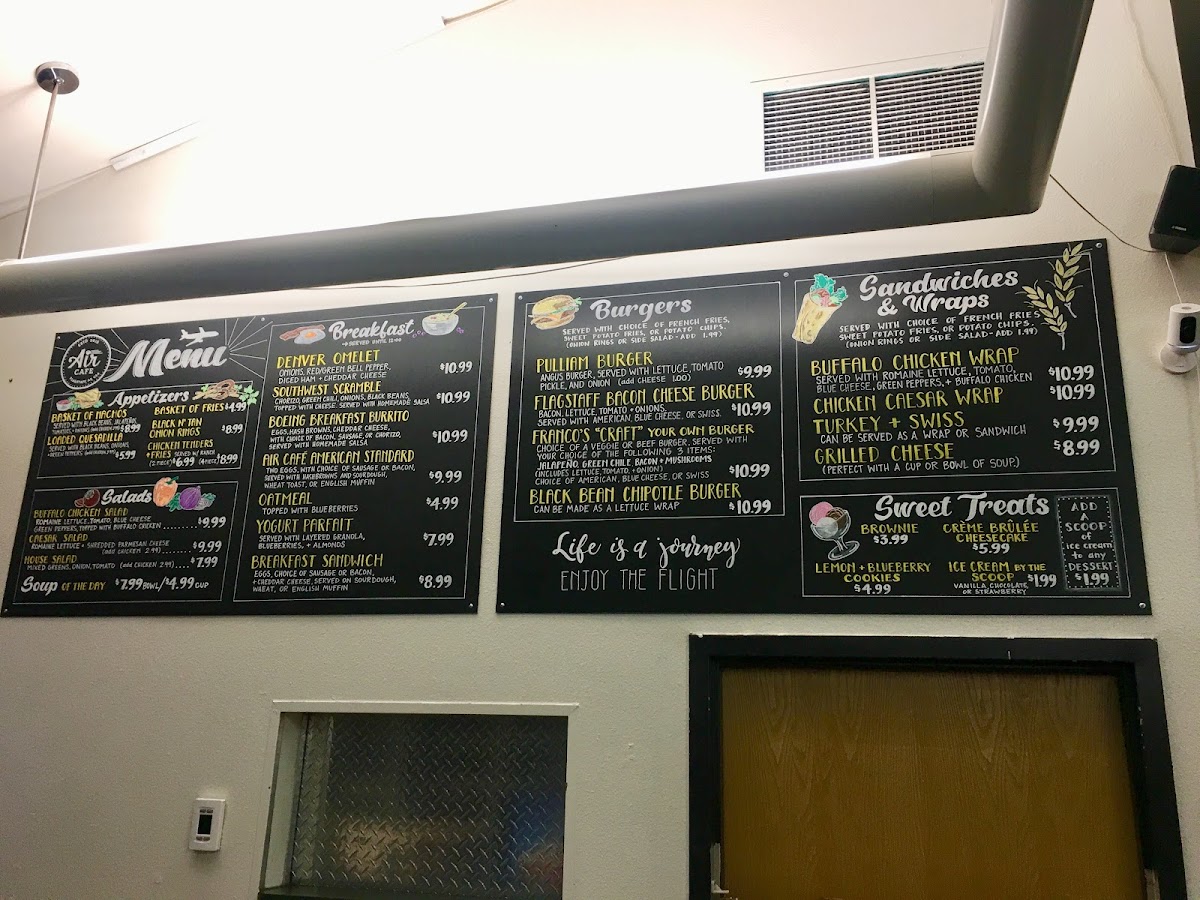 AIR
CAFE
Menu
Appetizers
BASKET OF NACHOS
SERVED WITH BLACK BEANS, JALAPEÑO,
$8.99
LOADED QUESADILLA
SERVED WITH BLACK BEANS, ONIONS,
$5.99
BASKET OF FRIES $4.99
BLACK N' TAN
ONION RINGS
$8.99
CHICKEN TENDERS
+ FRIES SERVED W/ RANCH
(2 PIECE) $6.99 (4 PIECE) $8.99
Salads
BUFFALO CHICKEN SALAD
ROMAINE LETTUCE, TOMATO, BLUE CHEESE
GREEN PEPPERS, TOPPED WITH BUFFALO CHICKEN ......... $9.99
CAESAR SALAD
ROMAINE LETTUCE + SHREDDED PARMESAN CHEESE
(add CHICKEN 2.99) ....... $9.99
HOUSE SALAD
MIXED GREENS, ONION, TOMATO (add CHICKEN 2.99) .... $7.99
Soup OF THE DAY $7.99 BOWL / $4.99 CUP
Breakfast
SERVED UNTIL 12:00
DENVER OMELET
ONIONS, RED/GREEN BELL PEPPER,
DICED HAM + CHEDDAR CHEESE
$10.99
SOUTHWEST SCRAMBLE
CHORIZO, GREEN CHILI, ONIONS, BLACK BEANS,
TOPPED WITH CHEESE. SERVED WITH HOMEMADE SALSA
$10.99
BOEING BREAKFAST BURRITO
EGGS, HASH BROWNS, CHEDDAR CHEESE,
WITH CHOICE OF BACON, SAUSAGE, OR CHORIZO,
SERVED WITH HOMEMADE SALSA
$10.99
AIR CAFÉ AMERICAN STANDARD
TWO EGGS, WITH CHOICE OF SAUSAGE OR BACON,
SERVED WITH HASHBROWNS AND SOURDOUGH,
WHEAT TOAST, OR ENGLISH MUFFIN
$9.99
OATMEAL
TOPPED WITH BLUEBERRIES
$4.99
YOGURT PARFAIT
SERVED WITH LAYERED GRANOLA,
BLUEBERRIES, + ALMONDS
$7.99
BREAKFAST SANDWICH
EGGS, CHOICE OF SAUSAGE OR BACON,
+ CHEDDAR CHEESE, SERVED ON SOURDOUGH,
WHEAT, OR ENGLISH MUFFIN
$8.99
Burgers
SERVED WITH CHOICE OF FRENCH FRIES,
SWEET POTATO FRIES, OR POTATO CHIPS.
(ONION RINGS OR SIDE SALAD - ADD 1.99)
PULLIAM BURGER
ANGUS BURGER, SERVED WITH LETTUCE, TOMATO
PICKLE, AND ONION (add CHEESE 1.00)
$9.99
FLAGSTAFF BACON CHEESE BURGER
BACON, LETTUCE, TOMATO + ONIONS.
SERVED WITH AMERICAN, BLUE CHEESE, OR SWISS.
$10.99
FRANCO'S "CRAFT" YOUR OWN BURGER
CHOICE OF A VEGGIE OR BEEF BURGER, SERVED WITH
YOUR CHOICE OF THE FOLLOWING 3 ITEMS:
JALAPEÑO, GREEN CHILE, BACON + MUSHROOMS
(INCLUDES LETTUCE, TOMATO, + ONION)
CHOICE OF AMERICAN, BLUE CHEESE, OR SWISS
$10.99
BLACK BEAN CHIPOTLE BURGER
CAN BE MADE AS A LETTUCE WRAP
$10.99
Life is a journey
ENJOY THE FLIGHT
Sandwiches
& Wraps
SERVED WITH CHOICE OF FRENCH FRIES
SWEET POTATO FRIES, OR POTATO CHIPS.
(ONION RINGS OR SIDE SALAD - ADD 1.99)
BUFFALO CHICKEN WRAP
SERVED WITH ROMAINE LETTUCE, TOMATO,
BLUE CHEESE, GREEN PEPPERS, + BUFFALO CHICKEN
$10.99
CHICKEN CAESAR WRAP
$10.99
TURKEY + SWISS
CAN BE SERVED AS A WRAP OR SANDWICH
$9.99
GRILLED CHEESE
(PERFECT WITH A CUP OR BOWL OF SOUP.)
$8.99
Sweet Treats
BROWNIE
$3.99
CRÈME BRÛLÉE
CHEESECAKE
$5.99
LEMON + BLUEBERRY
COOKIES
$4.99
ICE CREAM BY THE
SCOOP $1.99
VANILLA, CHOCOLATE,
OR STRAWBERRY
ADD
A
SCOOP
of
ice cream
to any
DESSERT
$1.99